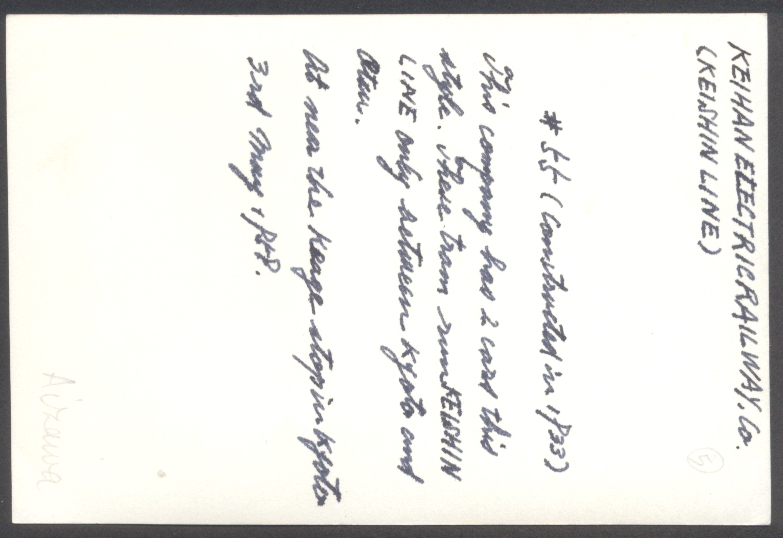 KEIHAN ELECTRIC RAILWAY. Co.
(KEISHIN LINE)
# 55 (Constructed in 1933)
This company has 2 cars this
style. These tram run KEISHIN
LINE only between Kyoto and
Otsu.
At near the Keage stop in Kyoto
3rd May, 1958.
5
Aizawa